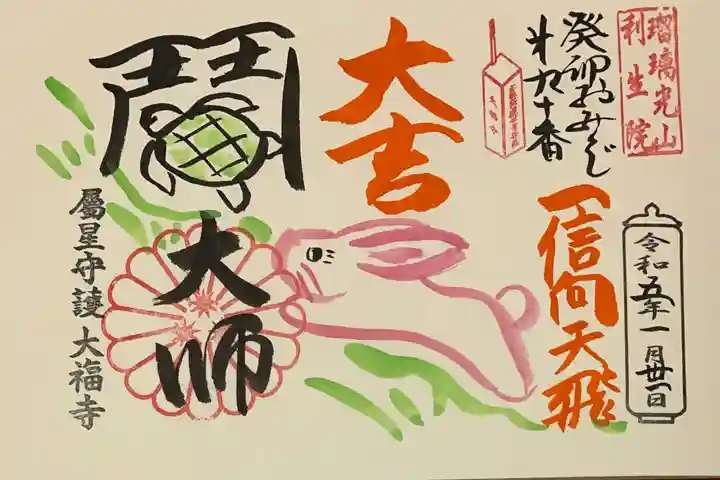 瑠璃光山
利生院
癸卯おみくじ
第九十番
令和五年一月廿一日
一信向天飛
大吉
鬮大師
屬星守護 大福寺